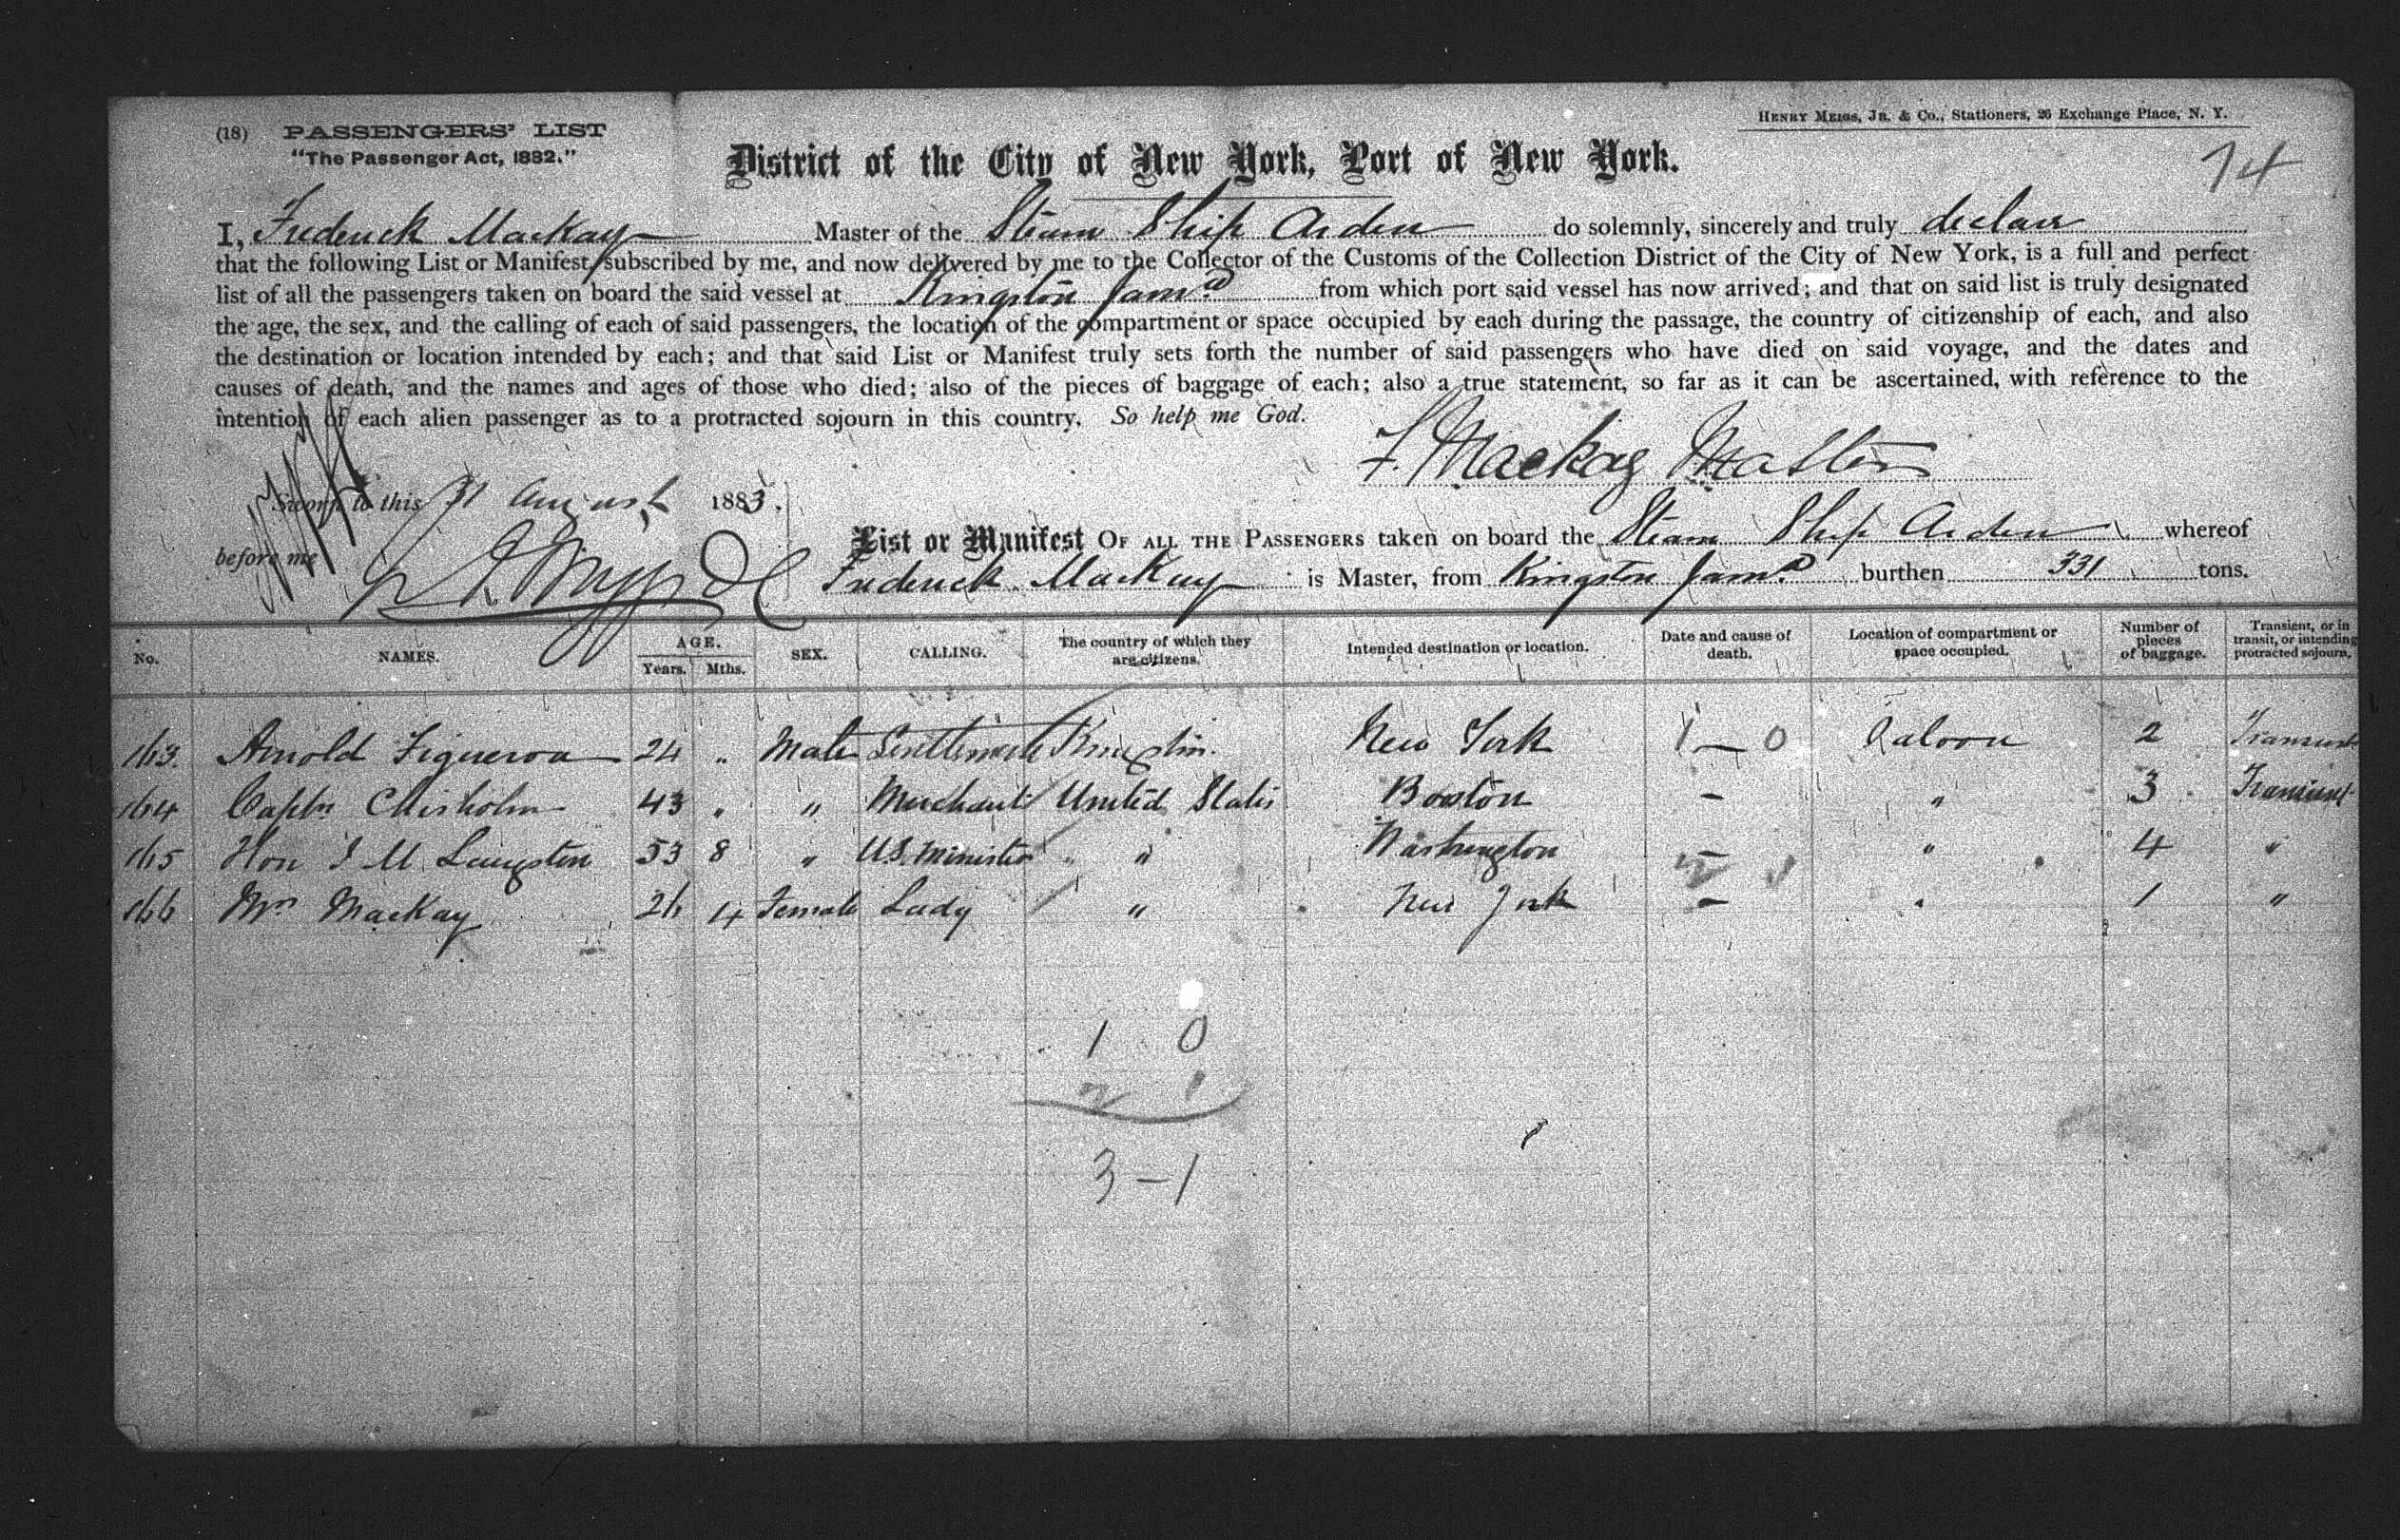 HENRY MEIGS, JR. & CO., Stationers, 26 Exchange Place, N. Y.
(18) PASSENGERS' LIST
"The Passenger Act, 1882."
District of the City of New York, Port of New York.
74
I, Frederick MacKay Master of the Steam Ship Arden do solemnly, sincerely and truly declare
that the following List or Manifest, subscribed by me, and now delivered by me to the Collector of the Customs of the Collection District of the City of New York, is a full and perfect
list of all the passengers taken on board the said vessel at Kingston Jam.a from which port said vessel has now arrived; and that on said list is truly designated
the age, the sex, and the calling of each of said passengers, the location of the compartment or space occupied by each during the passage, the country of citizenship of each, and also
the destination or location intended by each; and that said List or Manifest truly sets forth the number of said passengers who have died on said voyage, and the dates and
causes of death, and the names and ages of those who died; also of the pieces of baggage of each; also a true statement, so far as it can be ascertained, with reference to the
intention of each alien passenger as to a protracted sojourn in this country. So help me God.
F. Mackay Master
Sworn to this 31 August 1883.
before me
List or Manifest OF ALL THE PASSENGERS taken on board the Steam Ship Arden whereof
Frederick MacKay is Master, from Kingston Jam.a burthen 331 tons.
No. NAMES. AGE. Years. Mths. SEX. CALLING. The country of which they are citizens. Intended destination or location. Date and cause of death. Location of compartment or space occupied. Number of pieces of baggage. Transient, or in transit, or intending protracted sojourn.
163. Arnold Figueroa 24 " Male Gentleman Kingston. New York 1 — 0 Saloon 2 Transient
164 Captn Chisholm 43 " " Merchant United States Boston - " 3 Transient
165 Hon J M Langston 53 8 " U.S. Minister " " Washington - 2 1 " 4 "
166 Mrs MacKay 26 4 Female Lady " New York - " 1 "
1 0
2 1
3 - 1